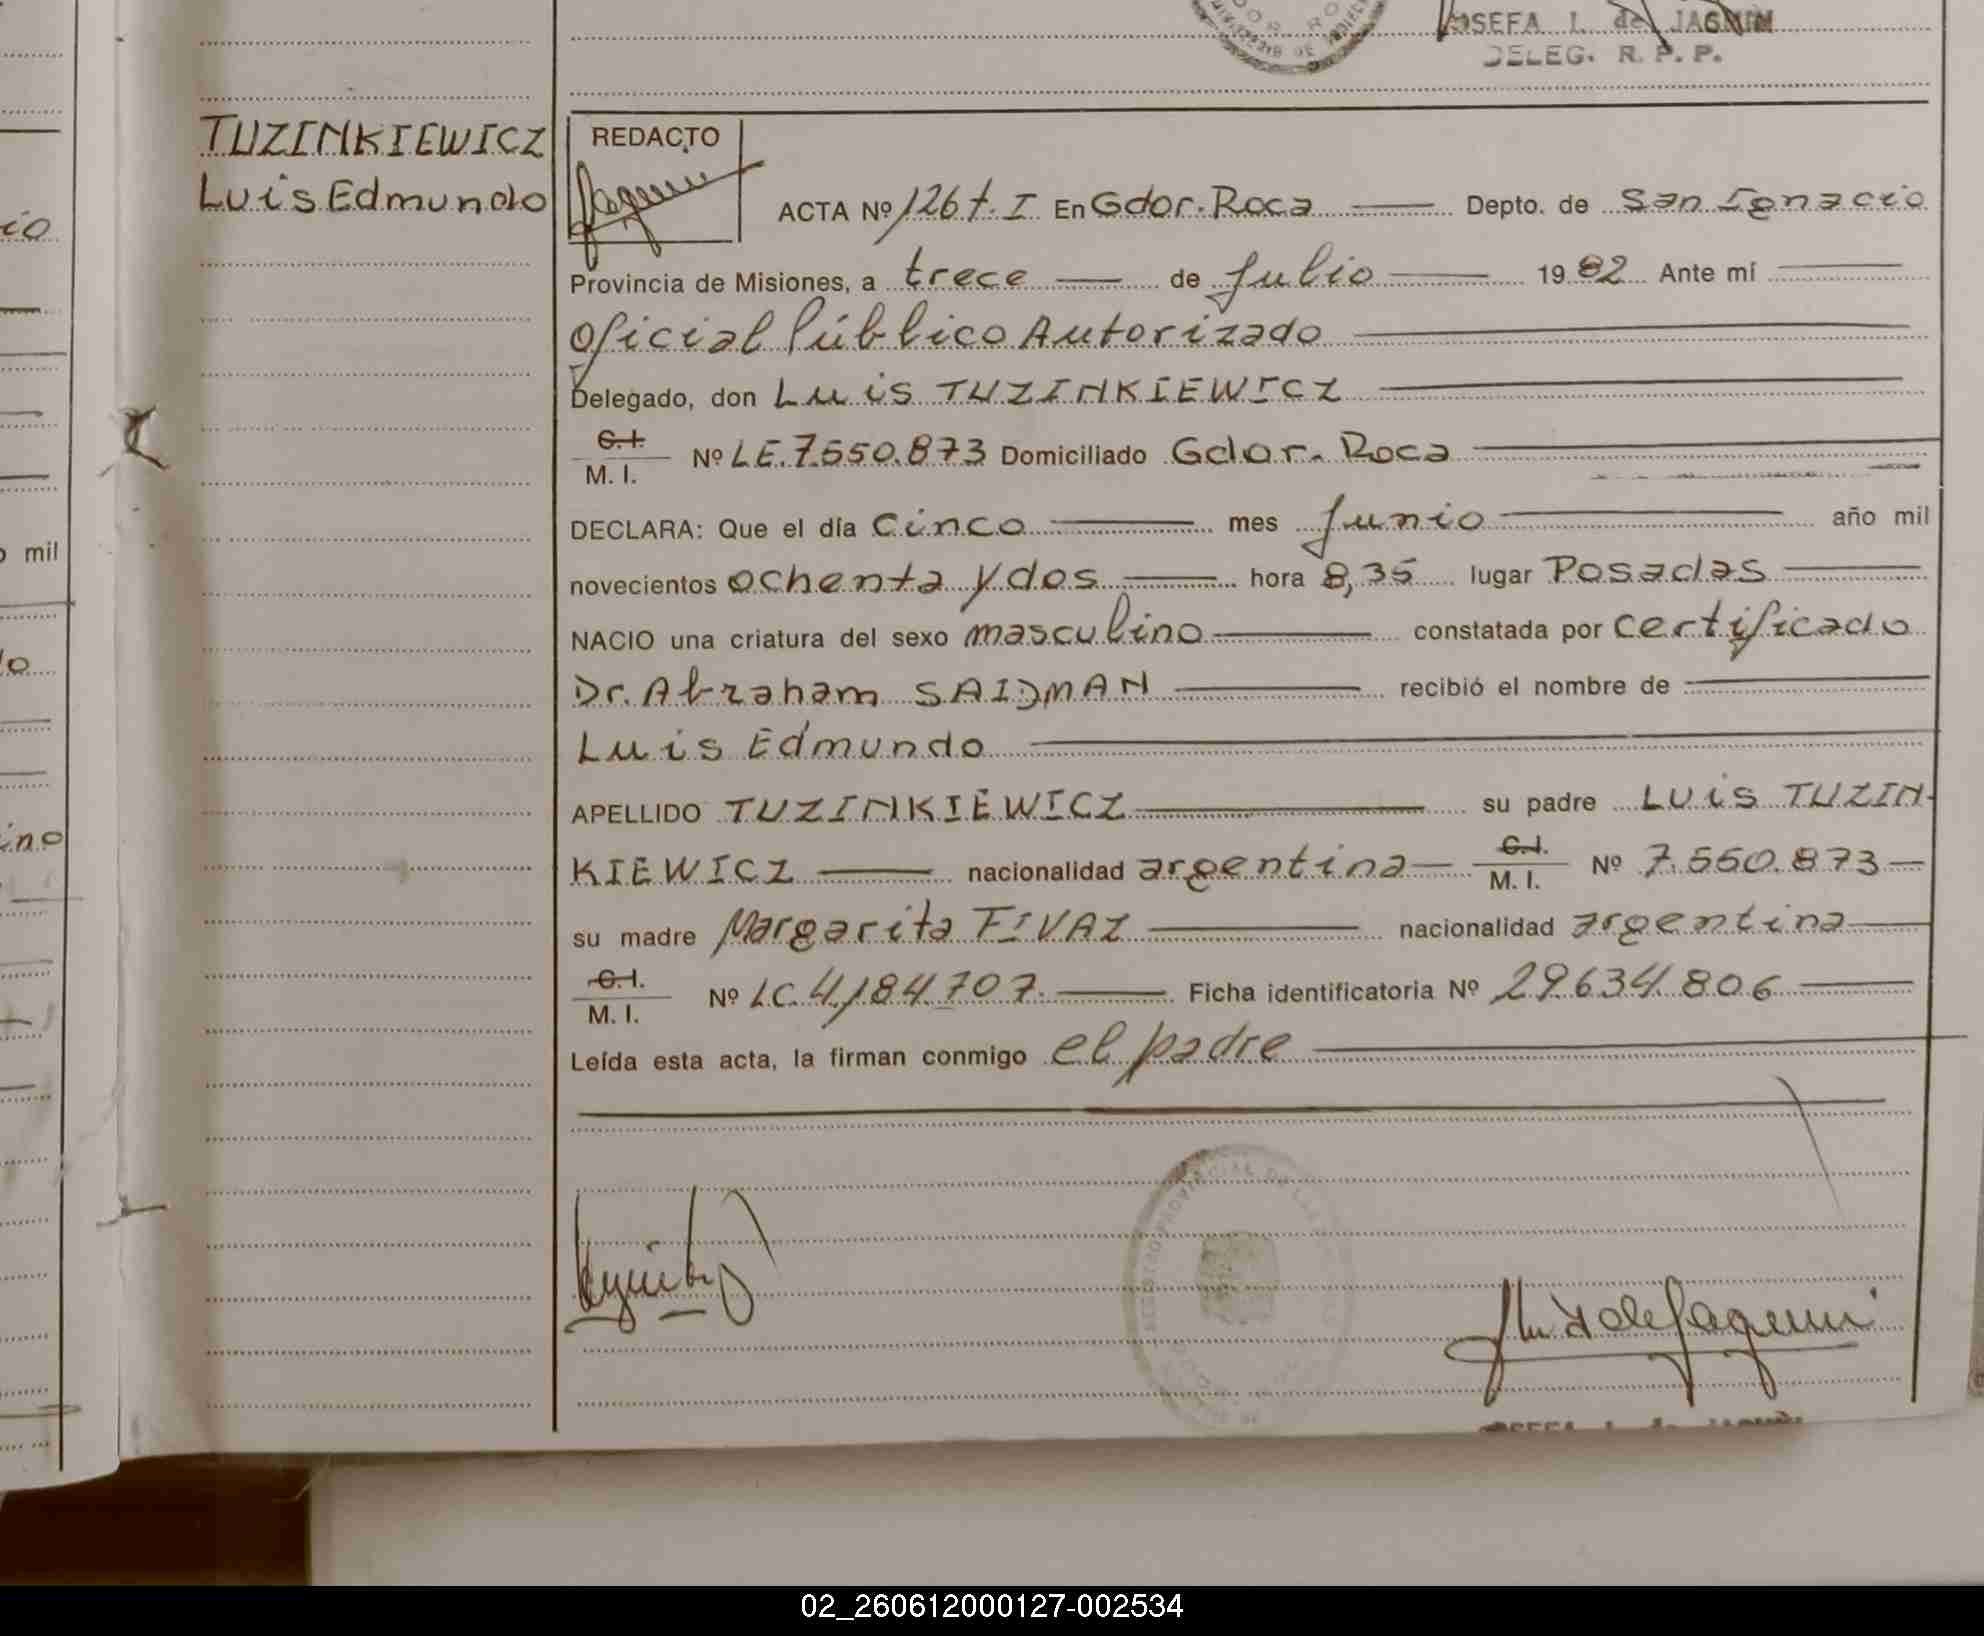 JOSEFA I. de JAGMIN
DELEG. R. P. P.
TUZINKIEWICZ
Luis Edmundo
REDACTO
ACTA Nº 126 t. I En Gdor. Roca Depto. de San Ignacio
Provincia de Misiones, a trece de Julio 1982 Ante mí
Oficial Público Autorizado
Delegado, don Luis TUZINKIEWICZ
C.I.
M. I. Nº LE. 7.550.873 Domiciliado Gdor. Roca
DECLARA: Que el día cinco mes Junio año mil
novecientos ochenta y dos hora 8,35 lugar Posadas
NACIO una criatura del sexo masculino constatada por certificado
Dr. Abraham SAIDMAN recibió el nombre de
Luis Edmundo
APELLIDO TUZINKIEWICZ su padre Luis TUZIN-
KIEWICZ nacionalidad argentina C.I. M. I. Nº 7.550.873
su madre Margarita FIVAZ nacionalidad argentina
C.I.
M. I. Nº LC. 4,184.707. Ficha identificatoria Nº 29.634.806
Leída esta acta, la firman conmigo el padre
02_260612000127-002534